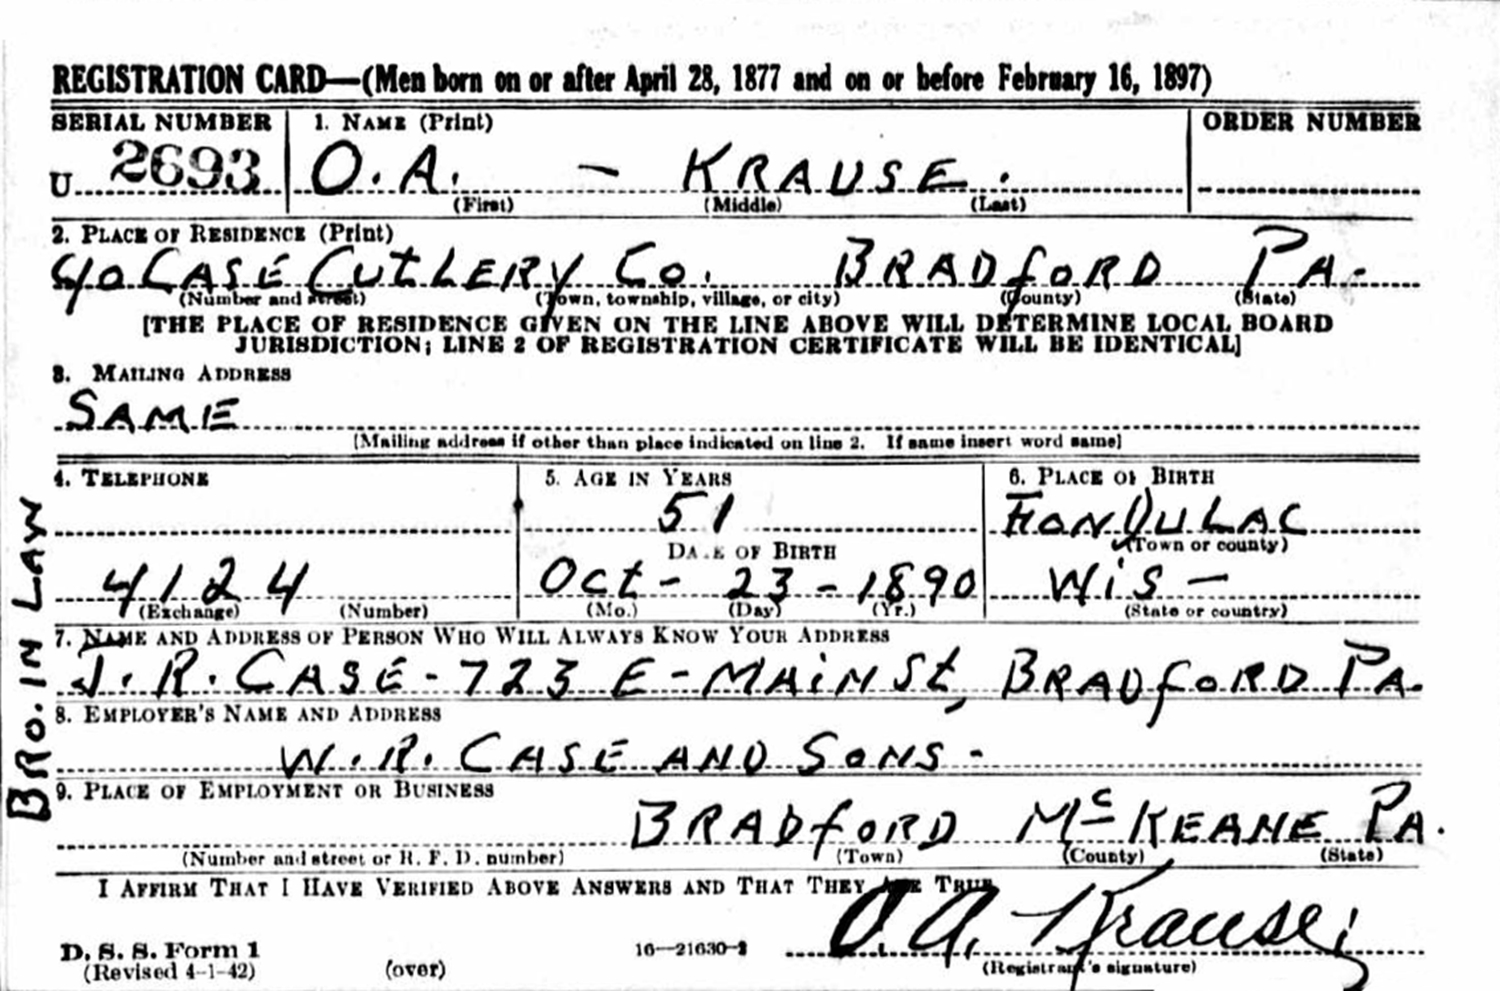 REGISTRATION CARD—(Men born on or after April 28, 1877 and on or before February 16, 1897)
SERIAL NUMBER 1. NAME (Print) ORDER NUMBER
U 2693 O. A. — KRAUSE.
(First) (Middle) (Last)
2. PLACE OF RESIDENCE (Print)
c/o CASE CUTLERY CO. BRADFORD PA.
(Number and street) (Town, township, village, or city) (County) (State)
[THE PLACE OF RESIDENCE GIVEN ON THE LINE ABOVE WILL DETERMINE LOCAL BOARD
JURISDICTION; LINE 2 OF REGISTRATION CERTIFICATE WILL BE IDENTICAL]
3. MAILING ADDRESS
SAME
[Mailing address if other than place indicated on line 2. If same insert word same]
4. TELEPHONE 5. AGE IN YEARS 6. PLACE OF BIRTH
51 FONDULAC
DATE OF BIRTH (Town or county)
4124 Oct - 23 - 1890 WIS —
(Exchange) (Number) (Mo.) (Day) (Yr.) (State or country)
7. NAME AND ADDRESS OF PERSON WHO WILL ALWAYS KNOW YOUR ADDRESS
J. R. CASE - 723 E - MAIN St, BRADFORD PA.
8. EMPLOYER'S NAME AND ADDRESS
W. R. CASE AND SONS -
9. PLACE OF EMPLOYMENT OR BUSINESS
BRADFORD McKEANE PA.
(Number and street or R. F. D. number) (Town) (County) (State)
I AFFIRM THAT I HAVE VERIFIED ABOVE ANSWERS AND THAT THEY ARE TRUE
O. A. Krause
D. S. S. Form 1 16—21630-2
(Revised 4-1-42) (over) (Registrant's signature)
BRO. IN LAW